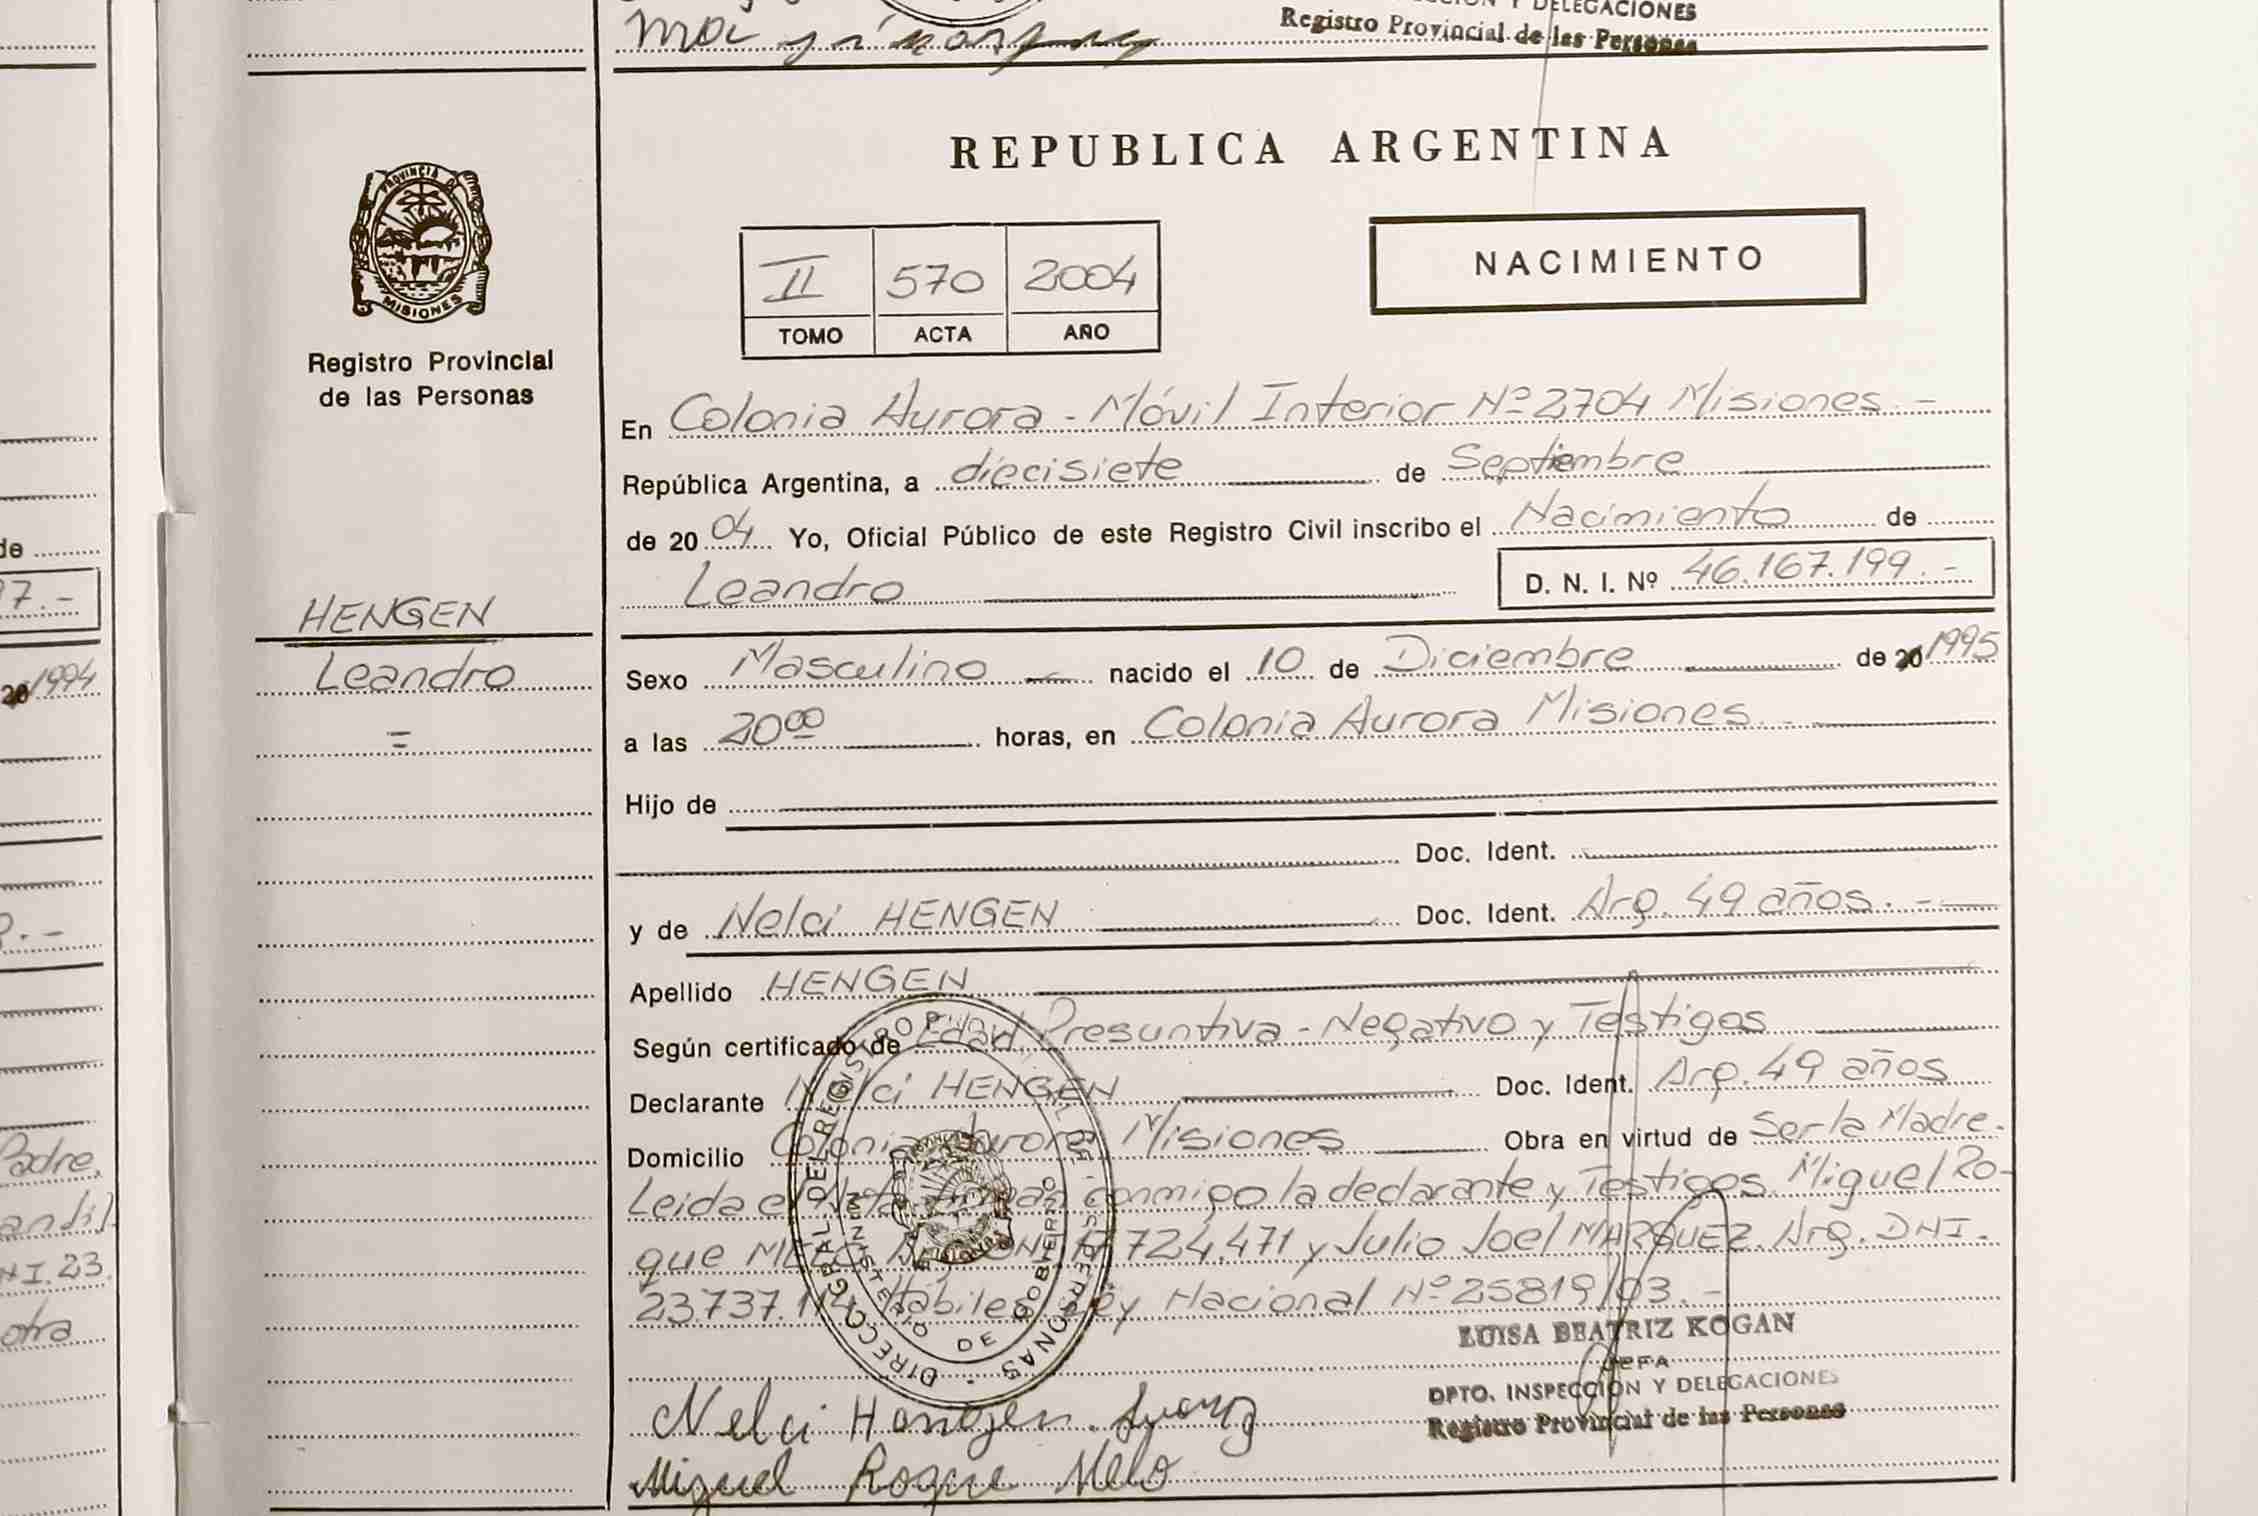 DELEGACIONES
Registro Provincial de las Personas
REPUBLICA ARGENTINA
PROVINCIA DE
MISIONES
Registro Provincial
de las Personas
II 570 2004
TOMO ACTA AÑO
NACIMIENTO
En Colonia Aurora - Móvil Interior Nº 2704 Misiones. -
República Argentina, a diecisiete de Septiembre
de 2004 Yo, Oficial Público de este Registro Civil inscribo el Nacimiento de
Leandro D. N. I. Nº 46.167.199. -
HENGEN
Leandro
=
Sexo Masculino nacido el 10 de Diciembre de 20 1995
a las 20 00 horas, en Colonia Aurora Misiones. -
Hijo de
Doc. Ident.
y de Nelci HENGEN Doc. Ident. Arg. 49 años. -
Apellido HENGEN
Según certificado de Edad Presuntiva - Negativo y Testigos
Declarante Nelci HENGEN Doc. Ident. Arg. 49 años
Domicilio Colonia Aurora Misiones Obra en virtud de Ser la Madre.
Leida el conmigo la declarante y Testigos Miguel Ro-
que 724.471 y Julio Joel MARQUEZ. Arg. DNI.
23.737. Hábiles Ley Nacional Nº 25819/03. -
DIRECC. GRAL DEL REGISTRO PERSONAS
MINISTERIO DE GOBIERNO
LUISA BEATRIZ KOGAN
JEFA
DPTO. INSPECCIÓN Y DELEGACIONES
Registro Provincial de las Personas
Nelci Hengen
Miguel Roque Melo
de
7. -
20 1994
. -
Padre,
N I. 23.
otra